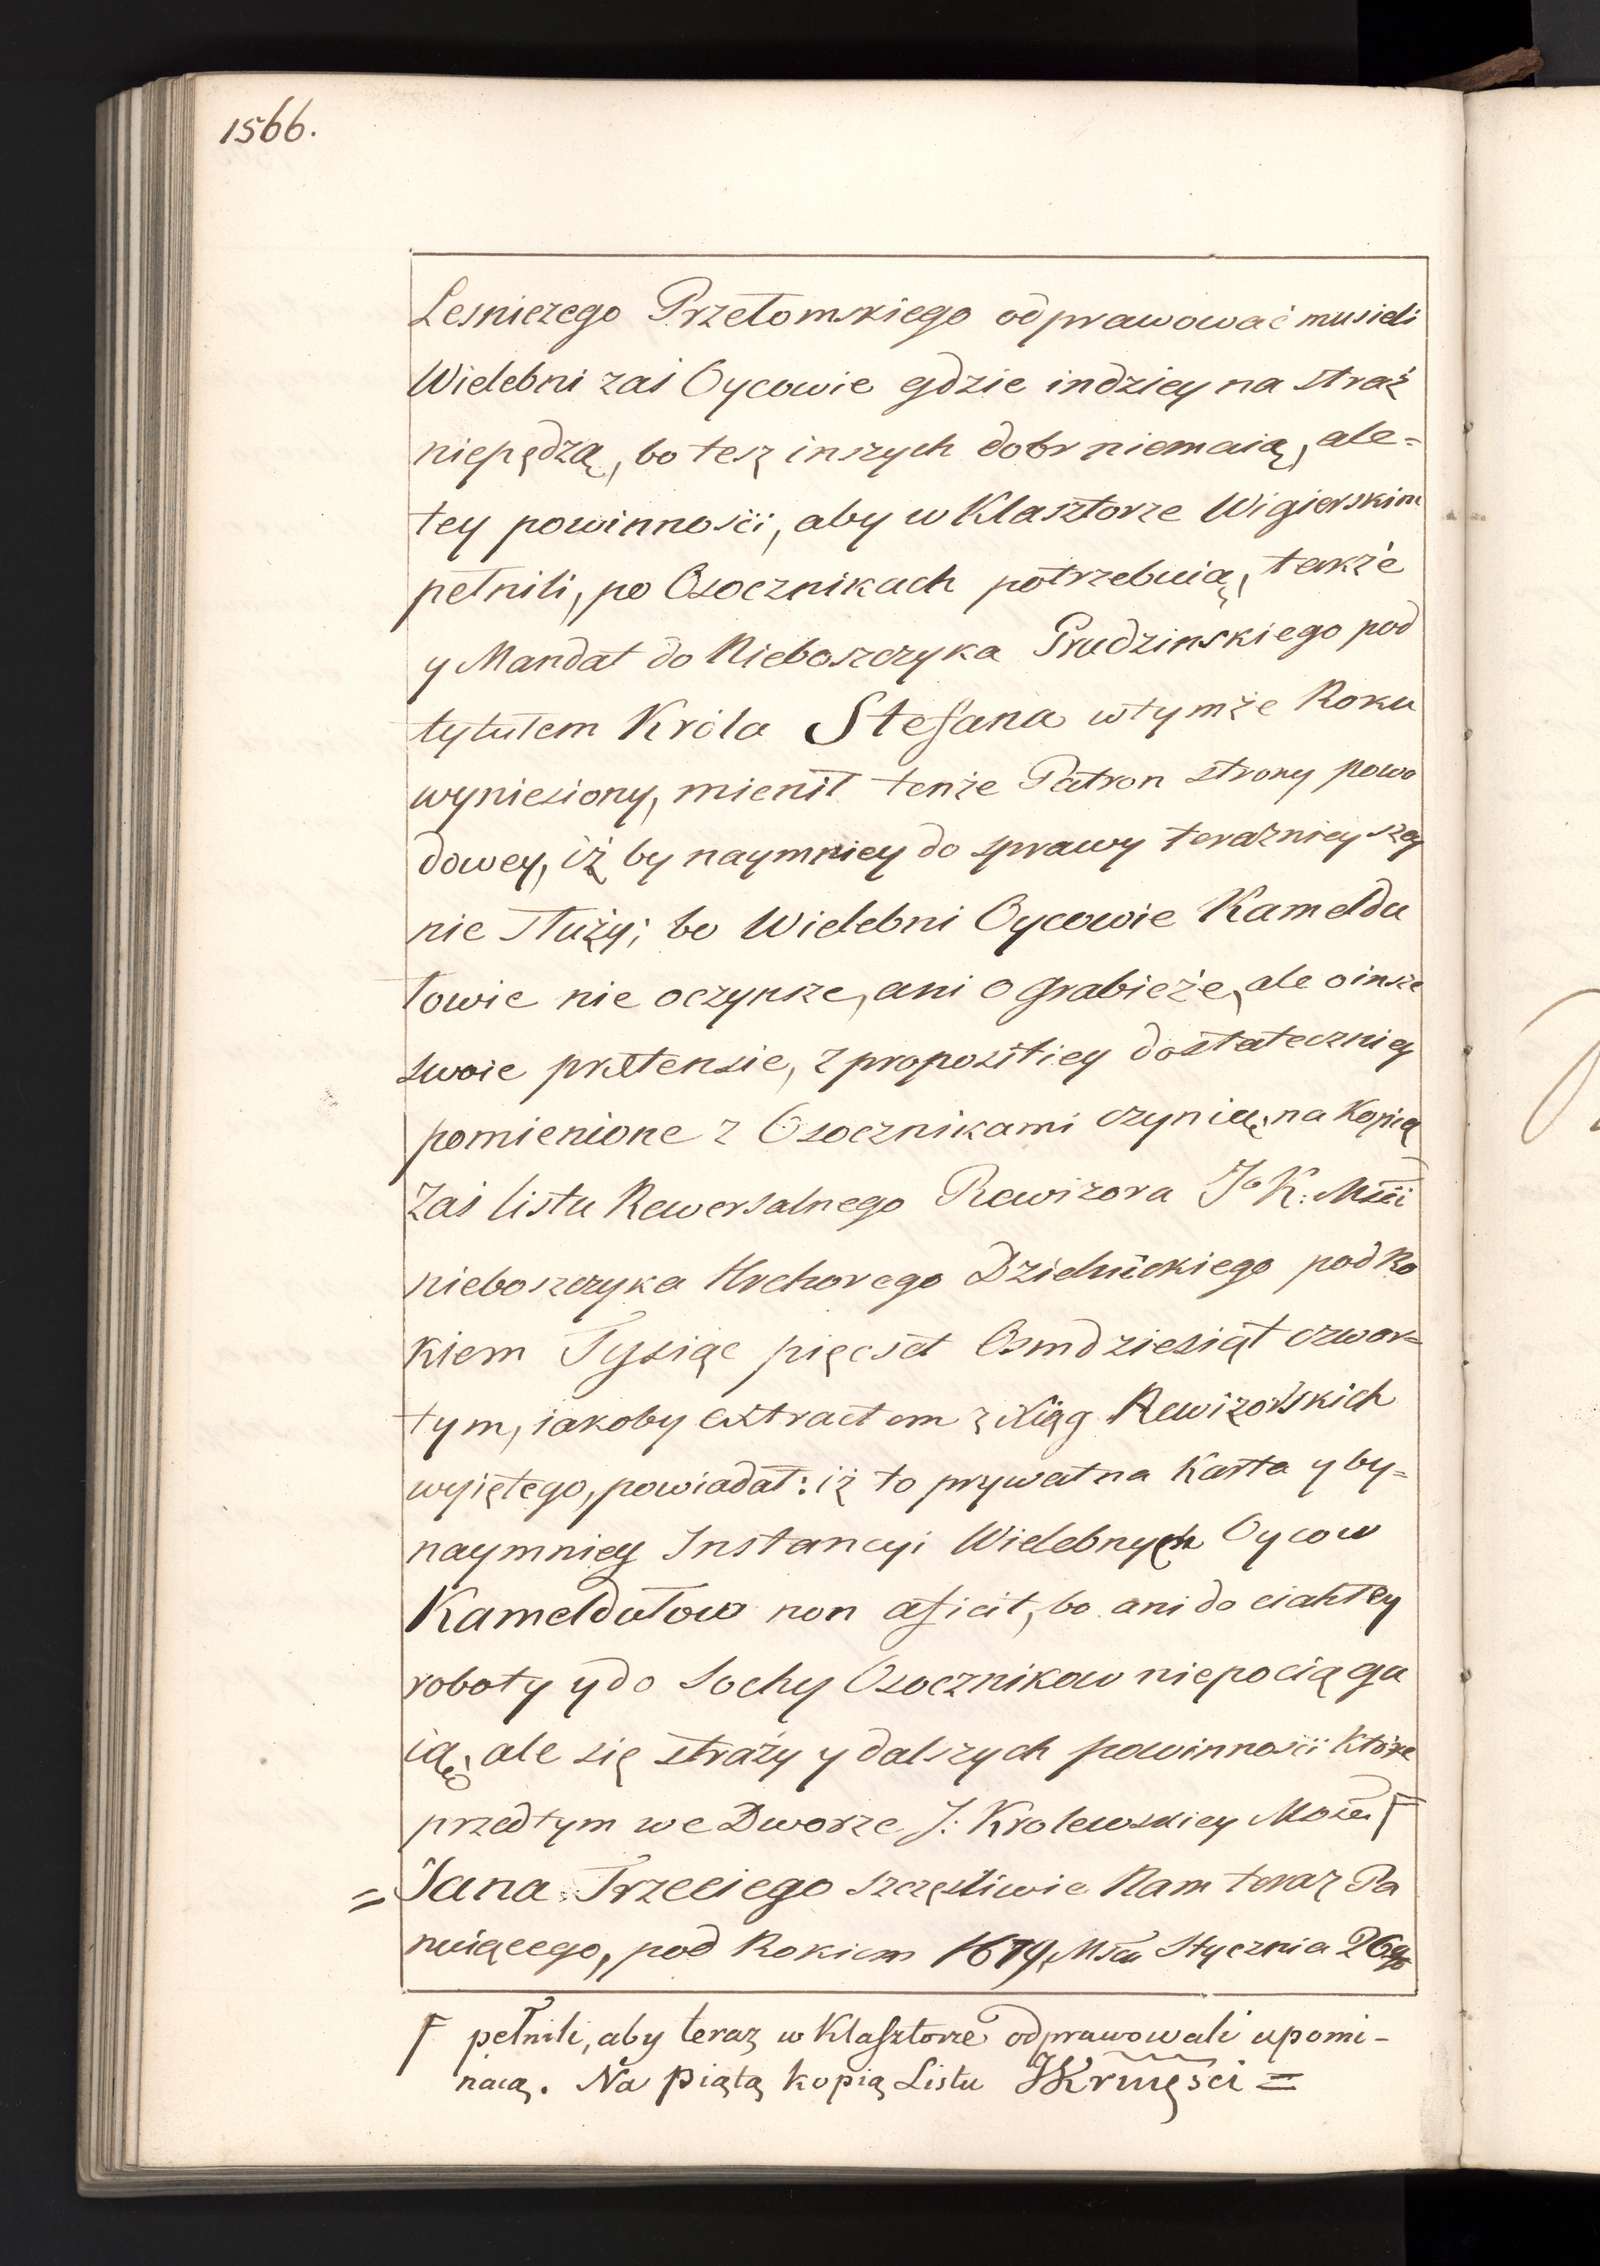 1566.
Lesniczego Przełomskiego odprawować musieli
Wielebni zaś Oycowie gdzie indziey na straż
niepędzą, bo tesz inszych dobr niemaią, ale=
tey powinnosci, aby w Klasztorze Wigierskim
pełnili, po Osocznikach potrzebuią, także
y Mandat do Nieboszczyka Prudzinskiego pod
tytułem Króla Stefana wtymże Roku
wyniesiony, mienił tenże Patron strony powo
dowey, iż by naymniey do sprawy teraźnieyszey
nie służy; bo Wielebni Oycowie Kameldu
łowie nie oczynsze, ani o grabieże, ale oinsze
swoie prætensie, z propositiey dostateczniey
pomienione z Osocznikami czynią; na Kopią
Zaś listu Rewersalnego Rewizora Jo K: Mści
nieboszczyka Hrehorego pod Ro
kiem Tysiąc pięcset Osmdziesiąt czwar=
tym, iakoby extractem z Xiąg Rewizorskich
wyiętego, powiadał: iż to prywatna Karta y by=
naymniey Instancyi Wielebnych Oycow
Kamedułow non aficit, bo ani do ciahłey
roboty y do Sochy Osocznikow niepociąga
ią, ale się straży y dalszych powinności które
przedtym we Dworze J: Krolewskiey Mości Γ
= Jana Trzeciego szczęśliwie Nam teraz Pa
nuiącego, pod Rokiem 1679, Msca Stycznia 26go
Γ pełnili, aby teraz w Klasztorze odprawowali upomi-
naią. Na piątą kopią Listu JKrmęsci =